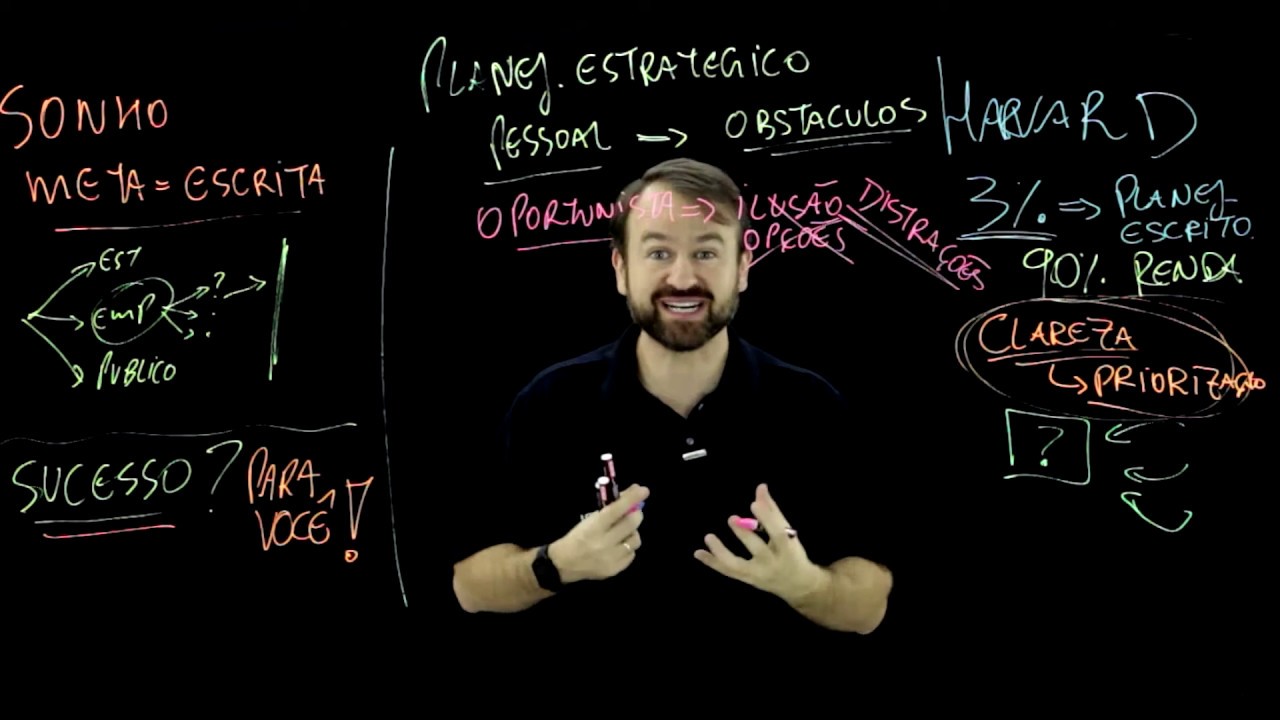 SONHO
META = ESCRITA
EST
EMP
?
PUBLICO
SUCESSO?
PARA
VOCÊ!
PLANEJ. ESTRATEGICO
PESSOAL => OBSTACULOS
OPORTUNISTA => ILUSÃO
OPÇÕES
DISTRAÇÕES
HARVARD
3% => PLANEJ
ESCRITO
90% RENDA
CLAREZA
PRIORIZAÇÃO
?